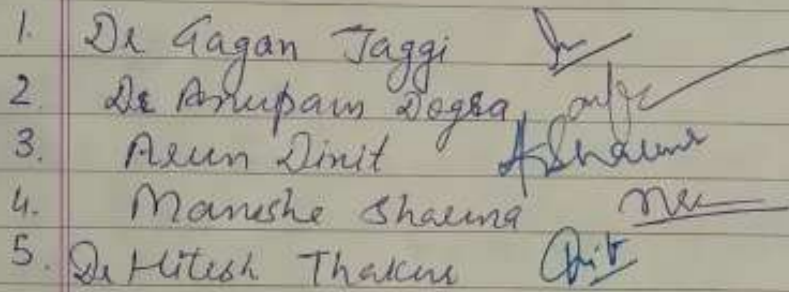 1. Dr Gagan Jaggi
2. Dr Anupam Dogra
3. Arun Dixit A Sharma
4. Manisha Sharma
5. Dr Hitesh Thakur